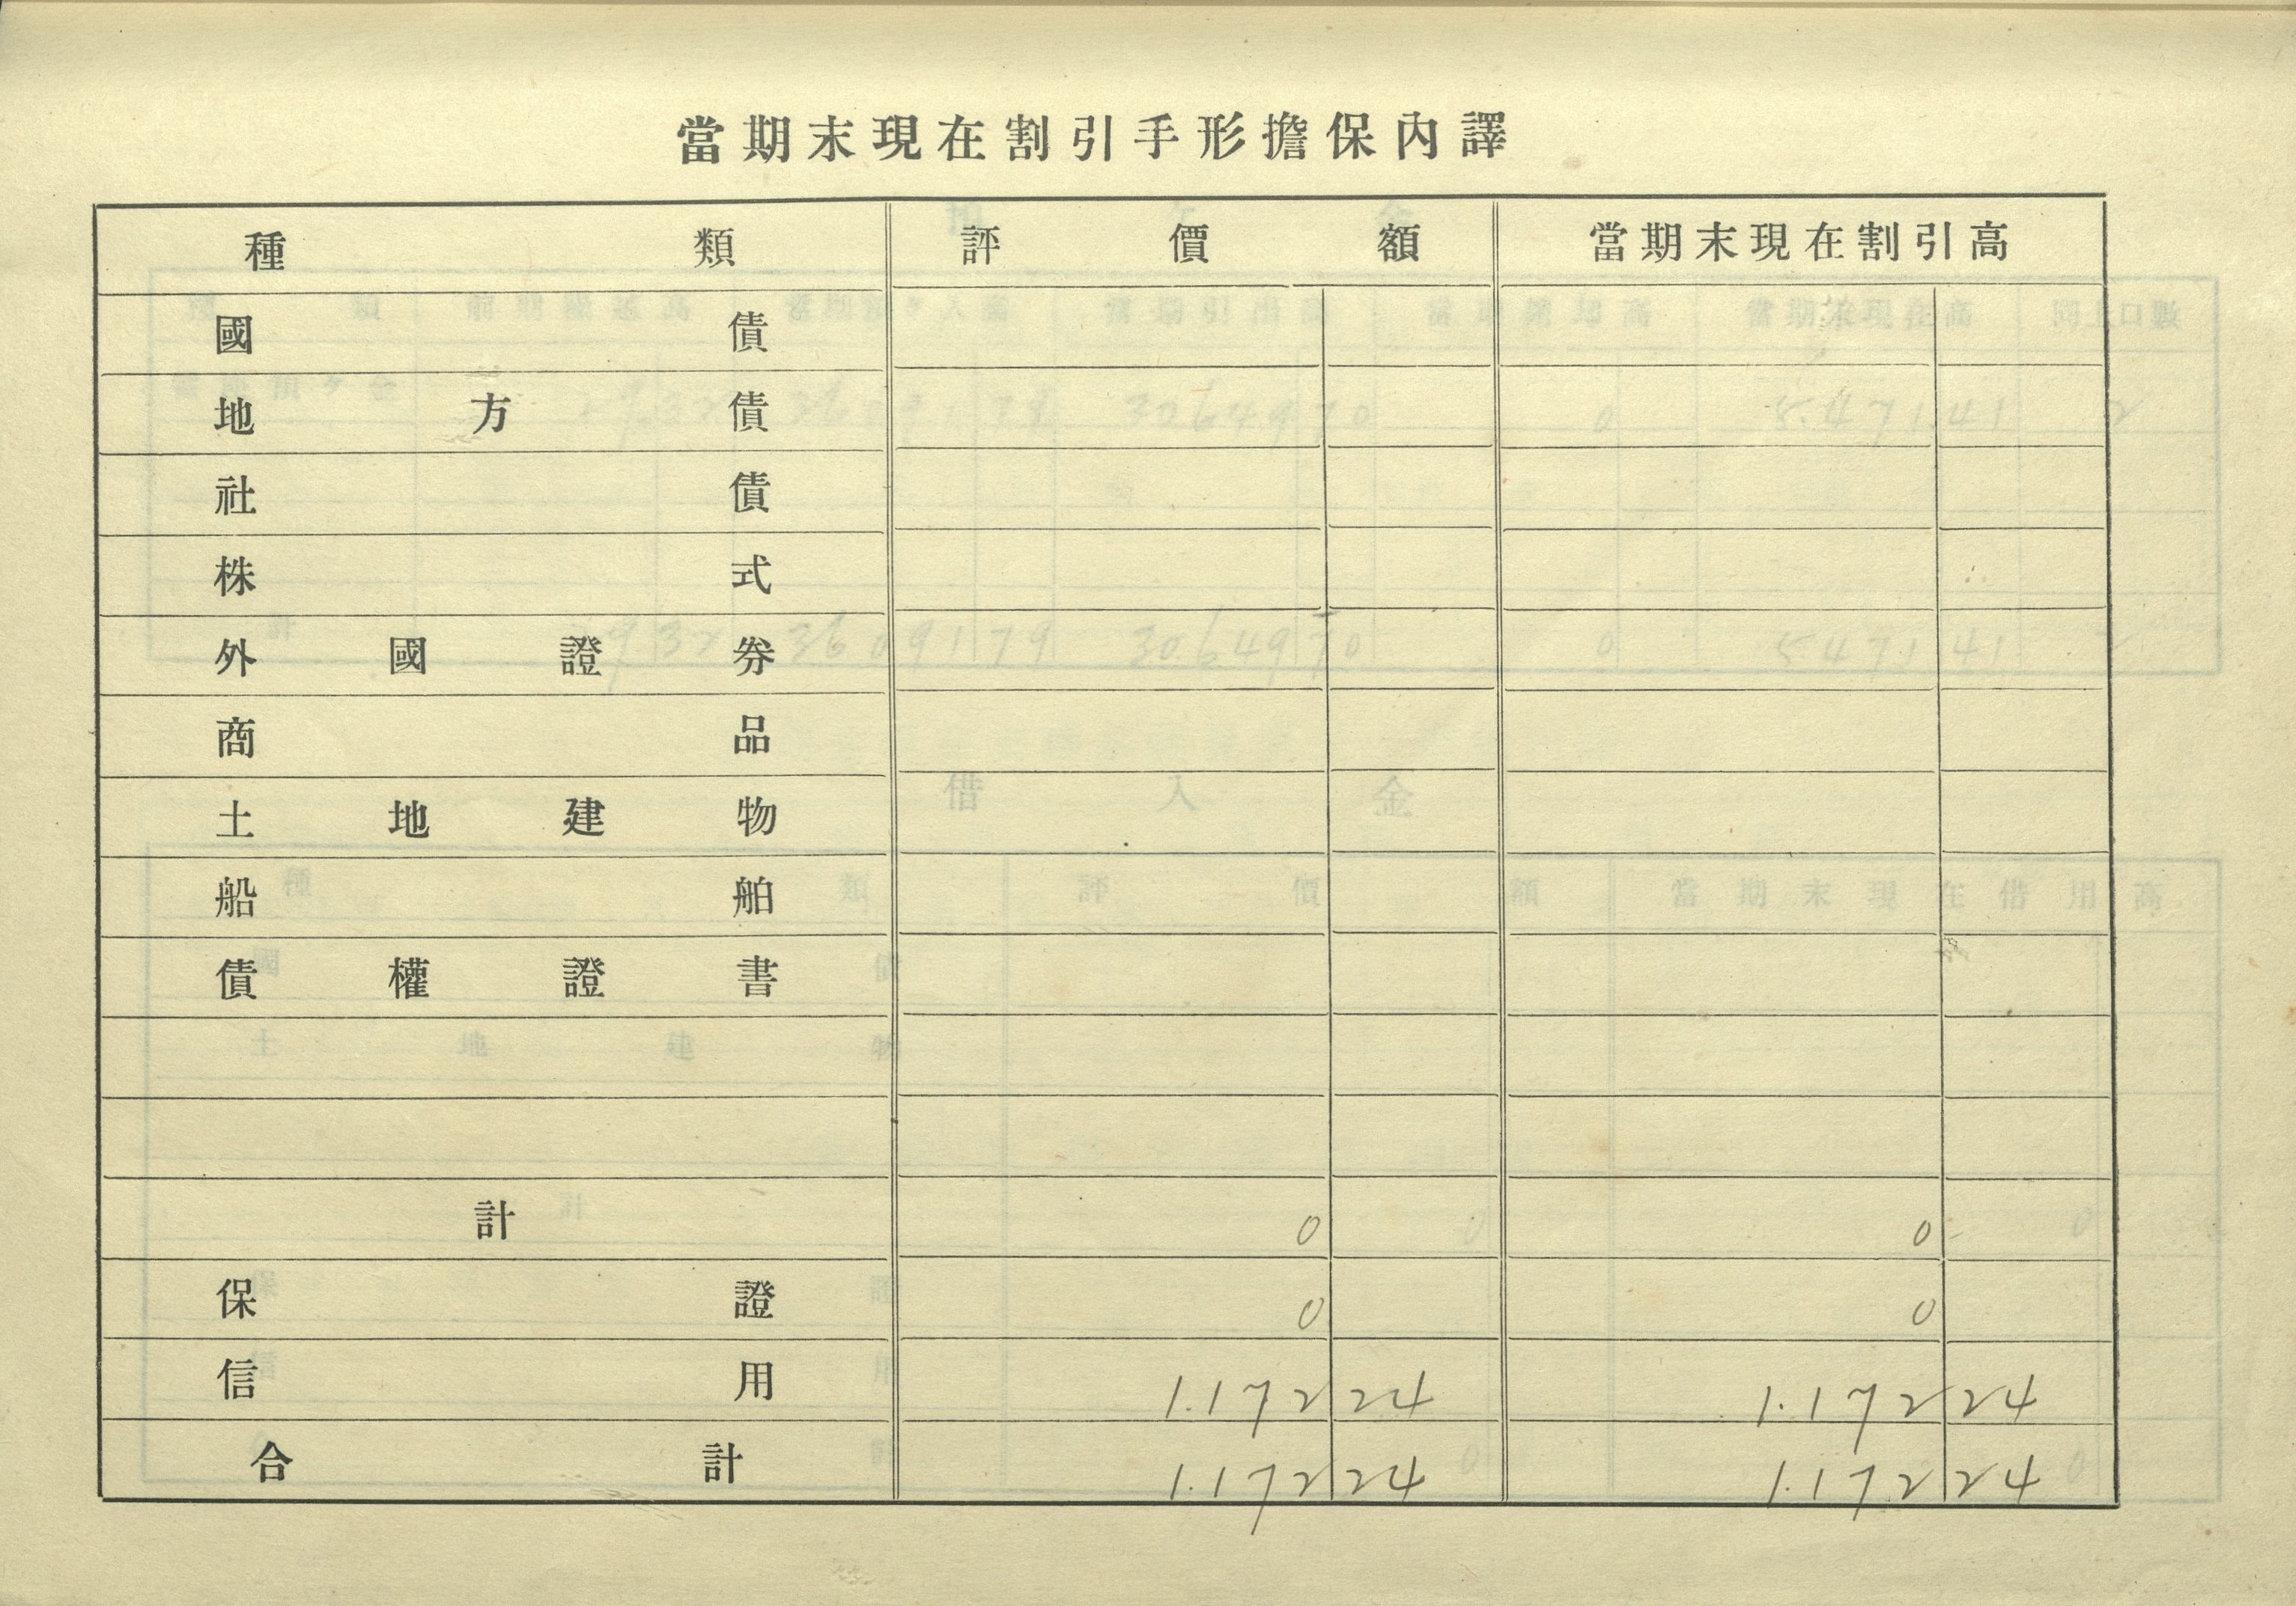 當期末現在割引手形擔保內譯
種類 評價額 當期末現在割引高
國債
地方債
社債
株式
外國證券
商品
土地建物
船舶
債權證書
計 0 0
保證 0 0
信用 1.172 24 1.172 24
合計 1.172 24 1.172 24